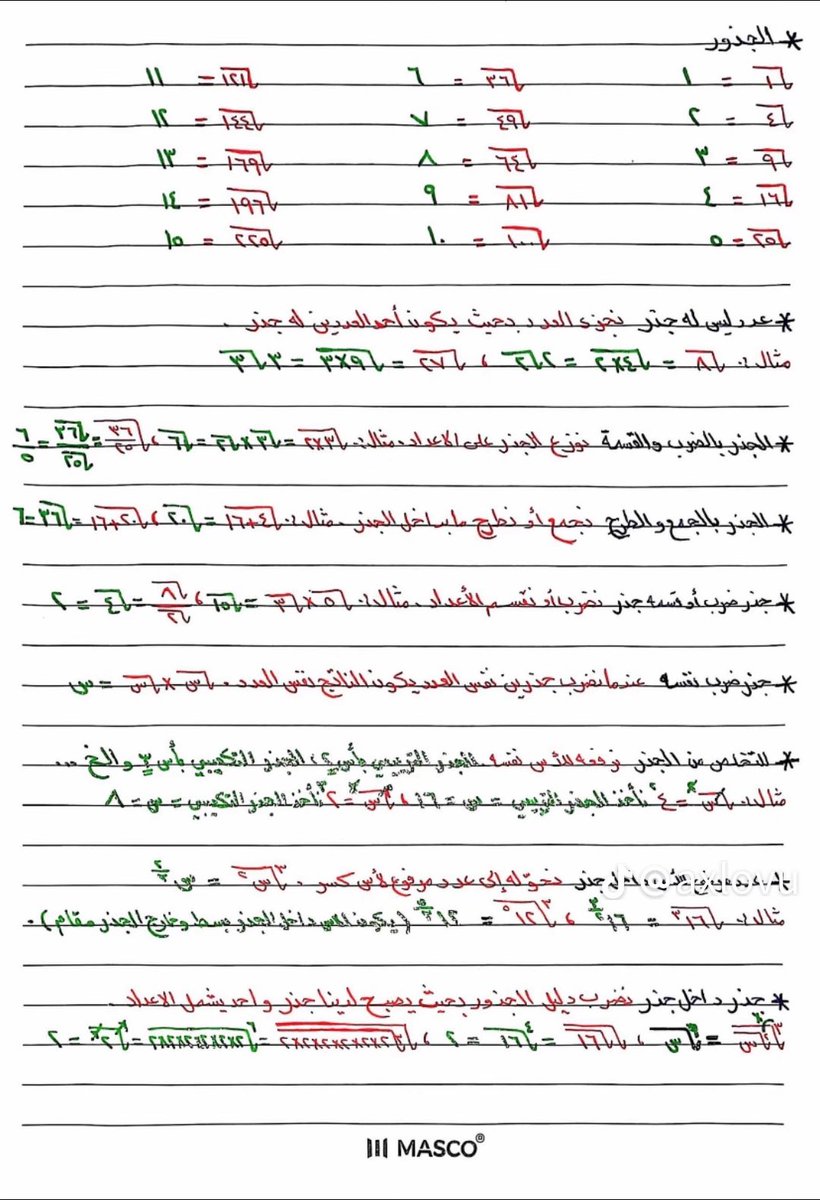 * الجذور
√١ = ١    √٣٦ = ٦    √١٢١ = ١١
√٤ = ٢    √٤٩ = ٧    √١٤٤ = ١٢
√٩ = ٣    √٦٤ = ٨    √١٦٩ = ١٣
√١٦ = ٤    √٨١ = ٩    √١٩٦ = ١٤
√٢٥ = ٥    √١٠٠ = ١٠    √٢٢٥ = ١٥
* عدد ليس له جذر نجزئ العدد بحيث يكون أحد العددين له جذر .
مثال: √٨ = √٤×٢ = ٢√٢ ، √٢٧ = √٩×٣ = ٣√٣
* الجذر بالضرب والقسمة نوزع الجذر على الاعداد . مثال: √٣×٢ = √٣ × √٢ = √٦ ، √٣٦/٢٥ = √٣٦/√٢٥ = ٦/٥
* الجذر بالجمع والطرح نجمع أو نطرح ما بداخل الجذر . مثال: √٤+١٦ = √٢٠ ، √٢٠+١٦ = √٣٦ = ٦
* جذر ضرب أو قسمة جذر نضرب أو نقسم الأعداد . مثال: √٥ × √٣ = √١٥ ، √٨/√٢ = √٤ = ٢
* جذر ضرب نفسه عندما نضرب جذرين نفس العدد يكون الناتج نفس العدد . √س × √س = س
* للتخلص من الجذر نرفعه للأس نفسه . الجذر التربيعي بأس ٢ ، الجذر التكعيبي بأس ٣ والخ ...
مثال: √س = ٤ نأخذ الجذر التربيعي = س = ١٦ ، ∛س = ٢ نأخذ الجذر التكعيبي = س = ٨
داخل جذر نحوّله إلى عدد مرفوع لأس كسر .
مثال: (يكون الاس داخل الجذر بسط وخارج الجذر مقام) .
* جذر داخل جذر نضرب دليل الجذور بحيث يصبح لدينا جذر واحد يشمل الاعداد .
MASCO®